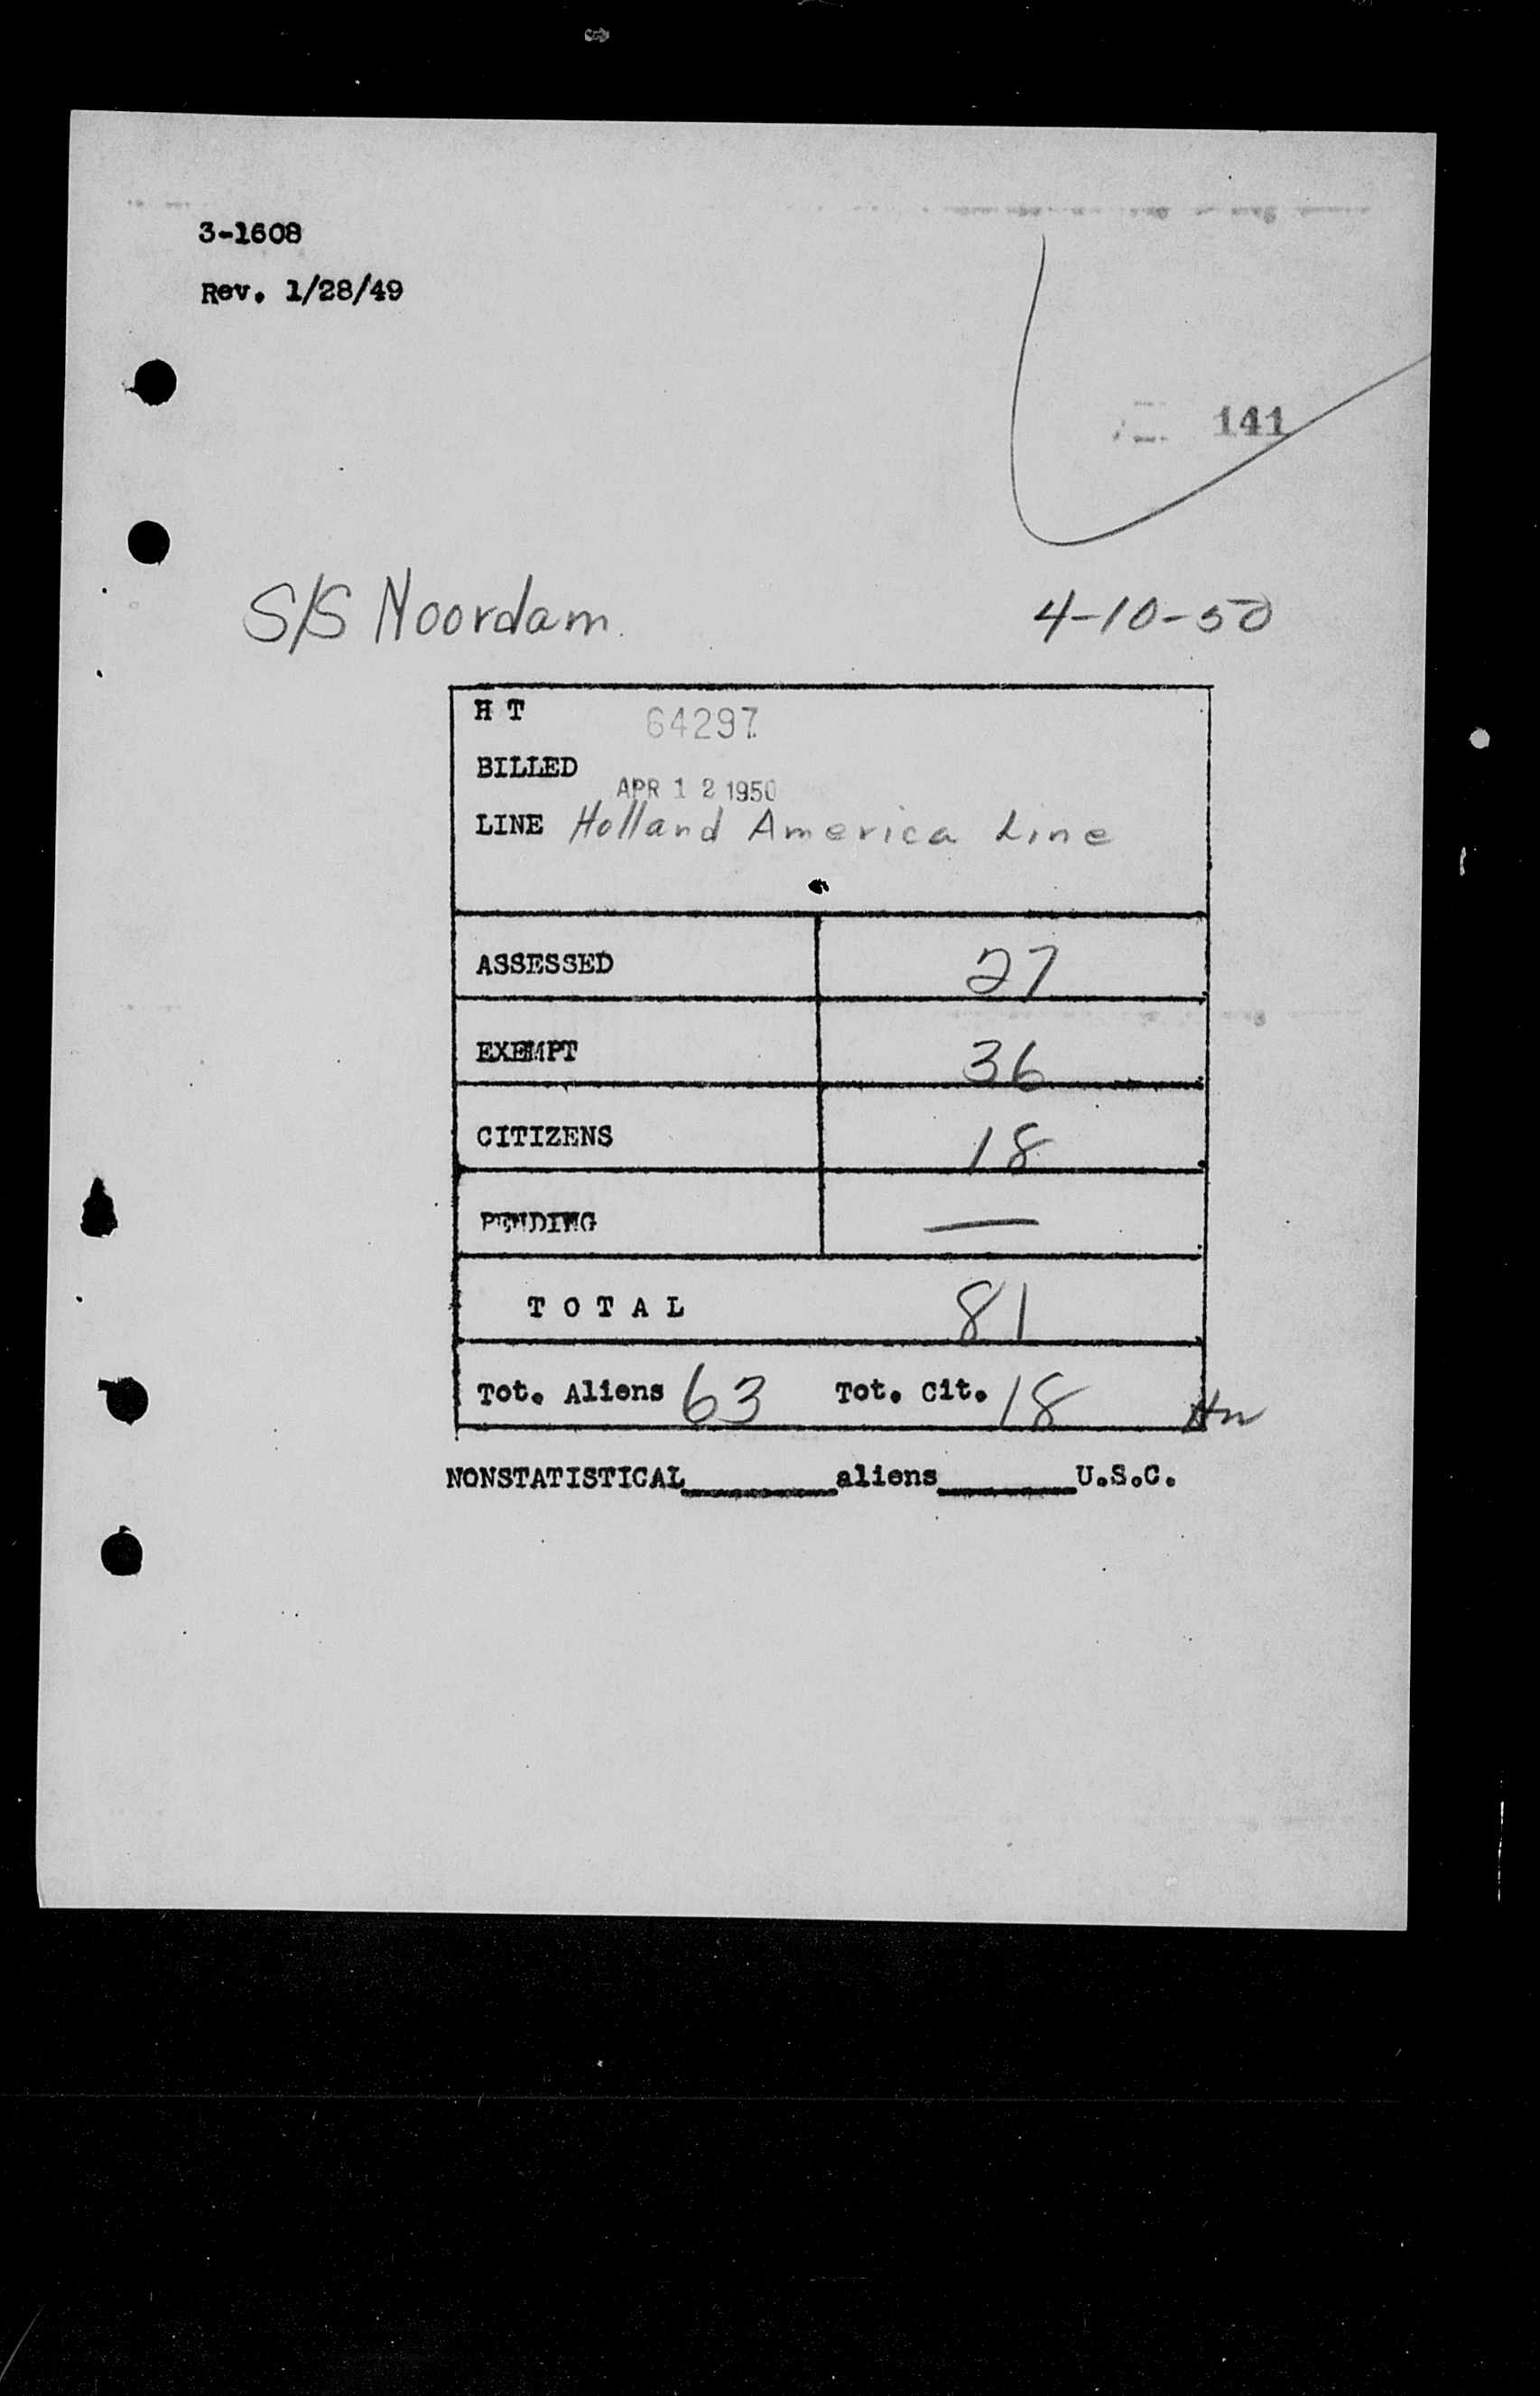 3-1608
Rev. 1/28/49
141
S/S Noordam
4-10-50
H T 64297
BILLED
APR 12 1950
LINE Holland America Line
ASSESSED 27
EXEMPT 36
CITIZENS 18
PENDING —
TOTAL 81
Tot. Aliens 63 Tot. Cit. 18
NONSTATISTICAL________aliens________U.S.C.